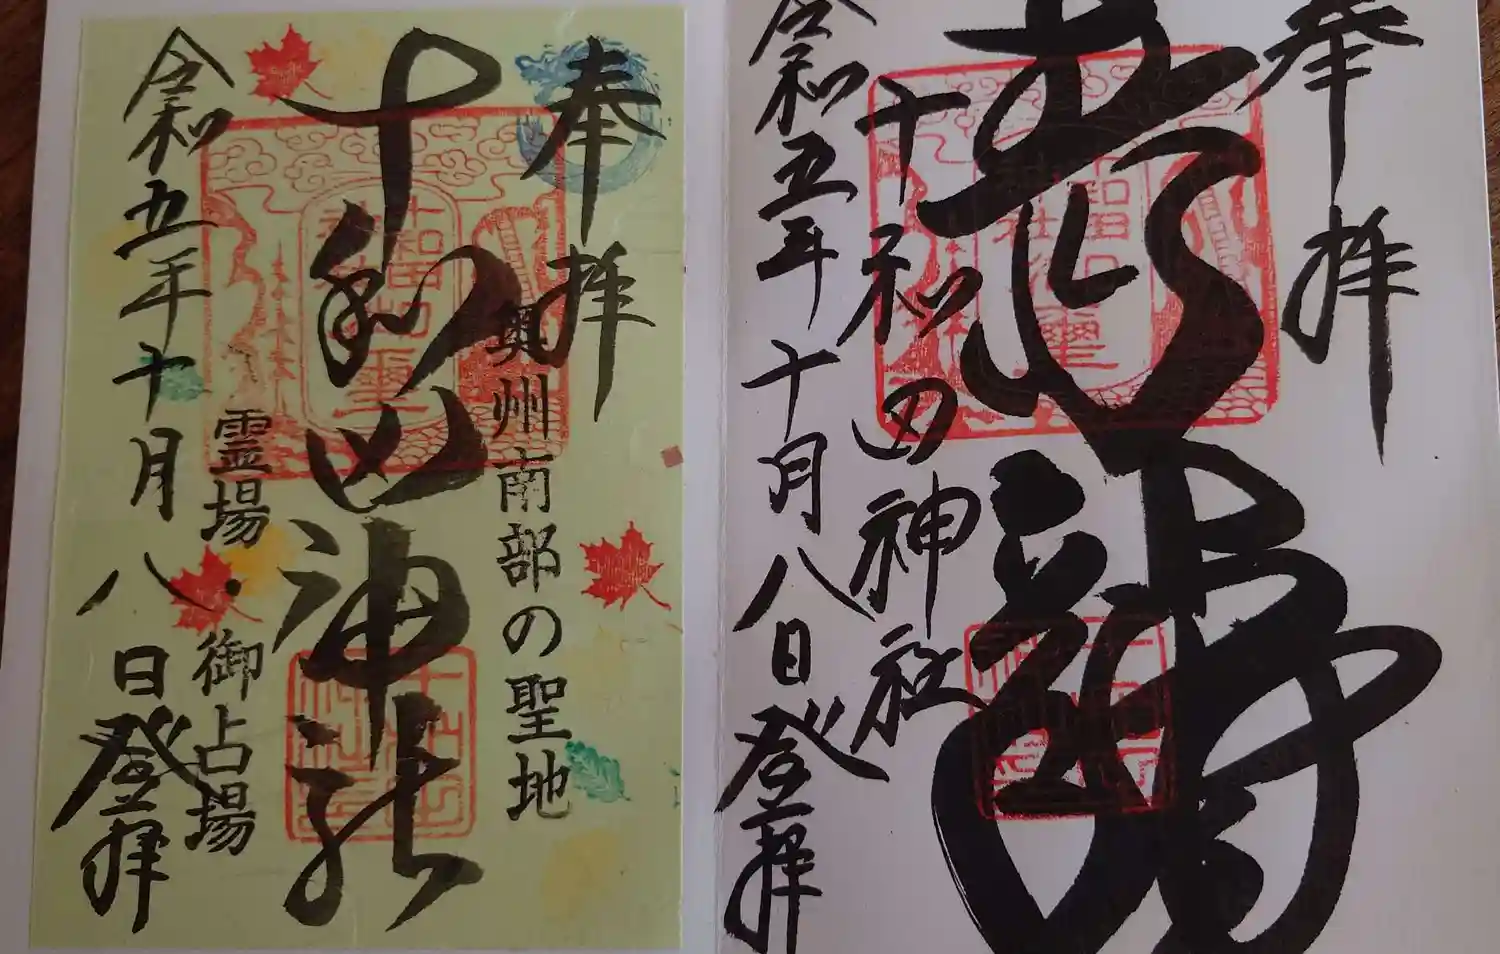 奉拝
青龍
十和田神社
令和五年十月八日登拝
奉拝
奥州南部の聖地
十和田神社
霊場・御占場
令和五年十月八日登拝